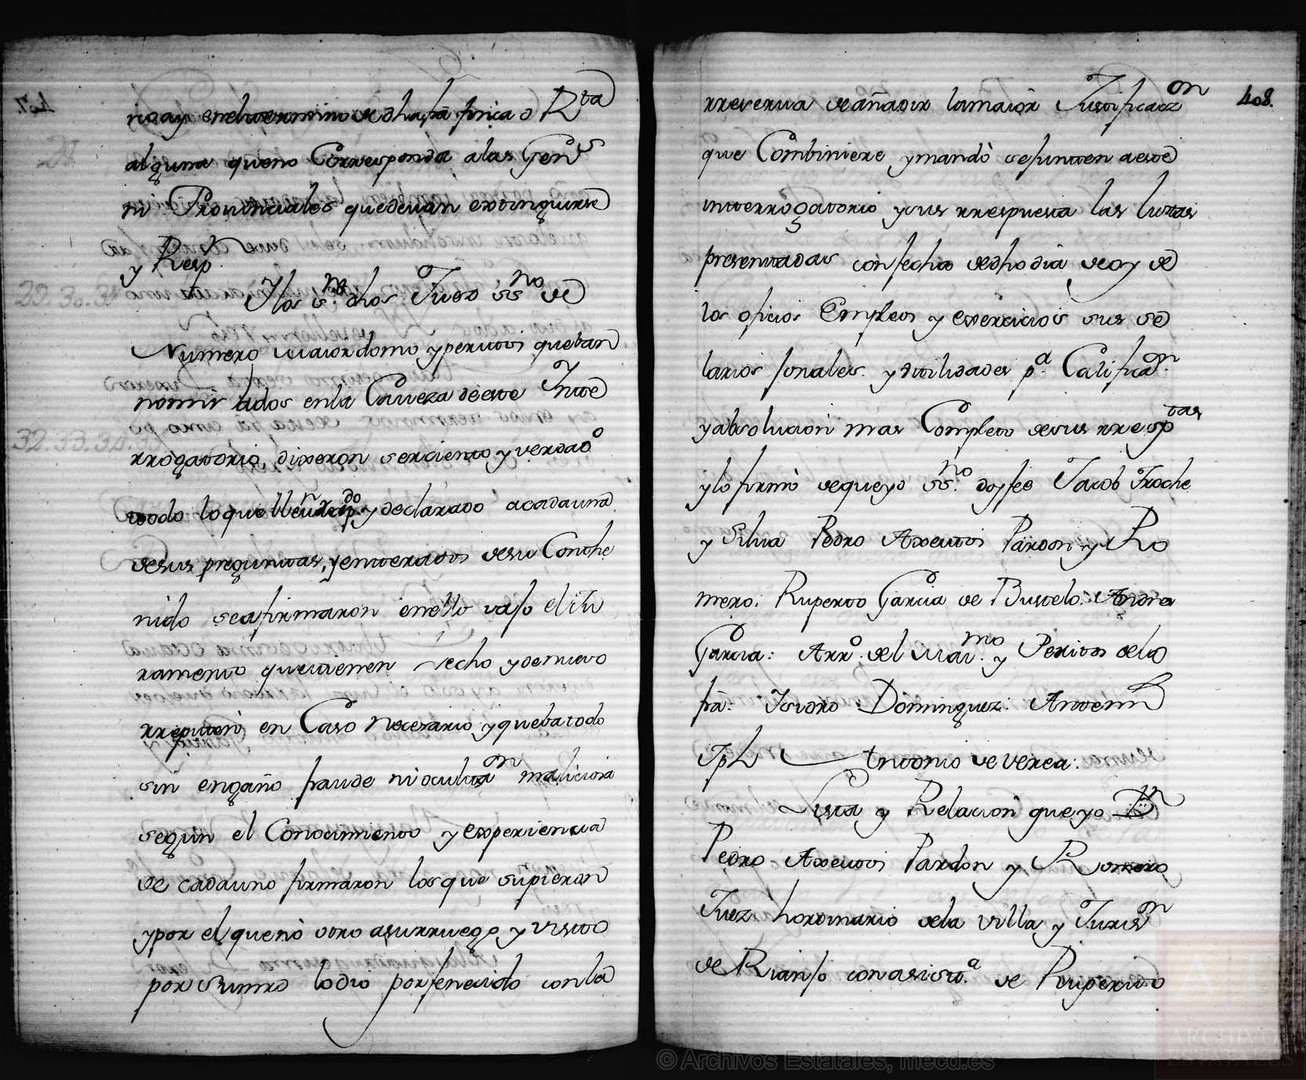 no ay en el termino de dha fra finca o Rta
alguna que no Corresponda a las Gens
ni Provinciales que devan extinguirse
y Resp.
Y los ss. dhos Juez ss.no de
Numero Maiordomo y peritos que ban
nomi lados en la Caveza de este Inte
rrogatorio, dixeron ser ciento y verdadº
todo lo que lleuan do y declarado a cada una
de sus preguntas, y enterados de su Conthe
nido se afirmaron en ello vajo el Ju
ramento que tienen echo y de nuevo
rrepiten en Caso Necesario, y que ba todo
sin engaño fraude ni ocultaon maliciosa
según el Conocimiento y experiencia
de cada uno firmaron los que supieron
y por el que nò otro a su rruego y visto
por su mrd lo dio por fenecido con la
rreserva de añadir la maior Justificazon
que Combiniere y mandò se junten a este
interrogatorio y sus rrespuesta las listas
presentadas con fecha de dho dia de oy de
los oficios Empleos y exercicios sus sa
larios jonales y utilidades pa. Calificaon.
y absolucion mas Completo de sus rresptas
y lo firmò de que yo ss.no doy fee Jacob Troche
y Silva Pedro Axeitos Pardon y Ro
mero: Ruperto Garcia de Bustelo: Andra
Garcia: Arro. del Maimo y Peritos de la
fra. Isidro Dominguez Antemi
408.
Antonio de verea:
Lista y Relacion que yo Dn
Pedro Axeitos Pardon y Romero
Juez hordinario de la villa y Jurisn
de Rianjo con asista de Ruperto
© Archivos Estatales, mecd.es
ARCHIVOS
ESTATALES